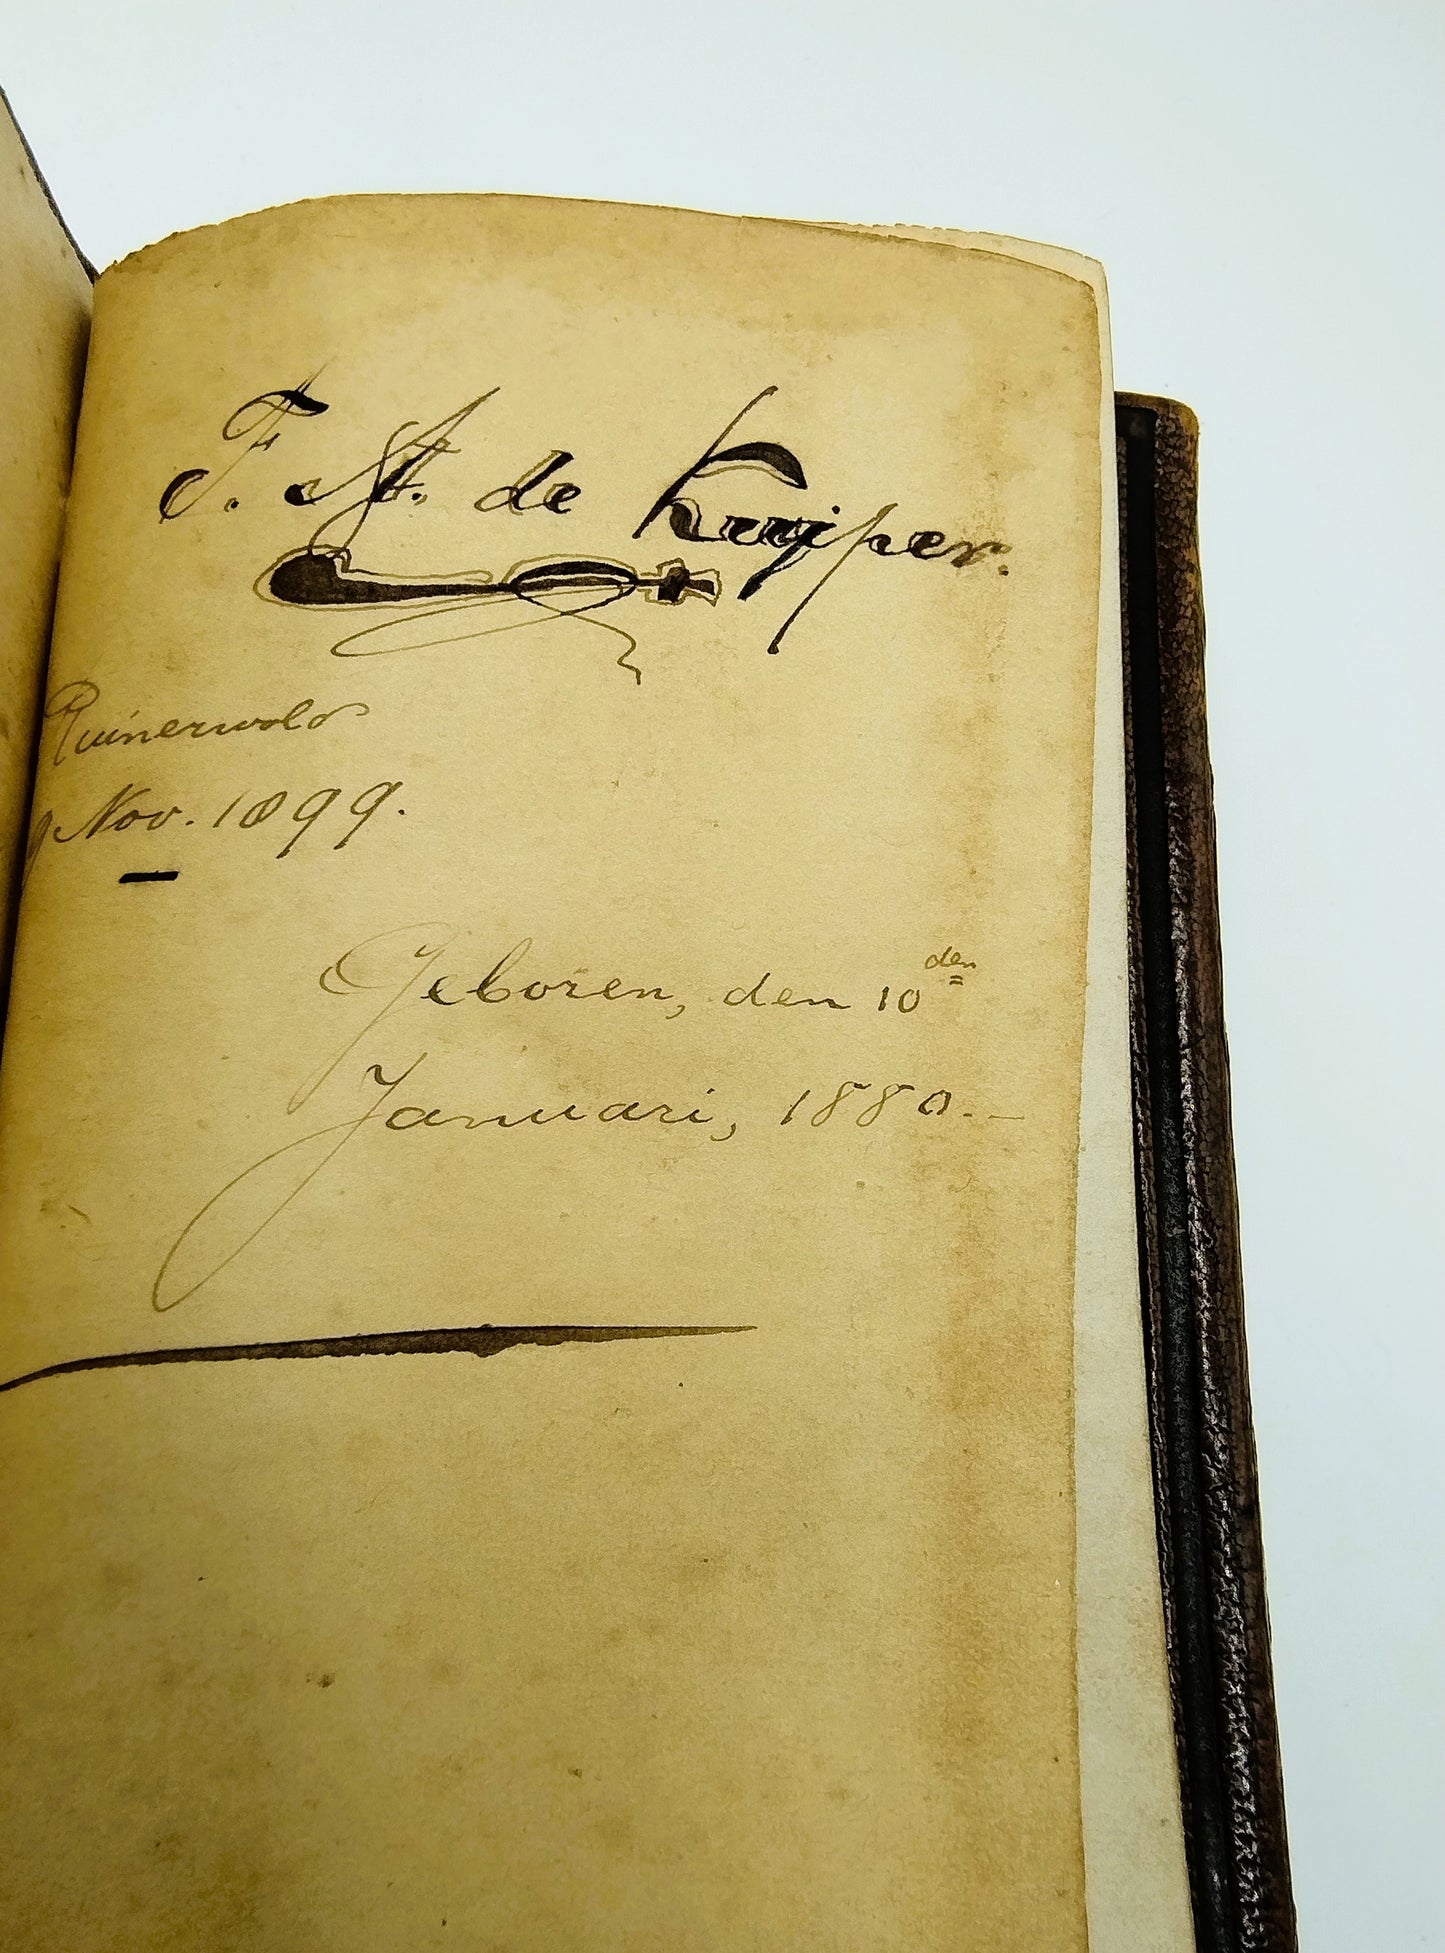 F. A. de Kuijper.
Ruinerwold
9 Nov. 1899.
Geboren, den 10den
Januari, 1880.—